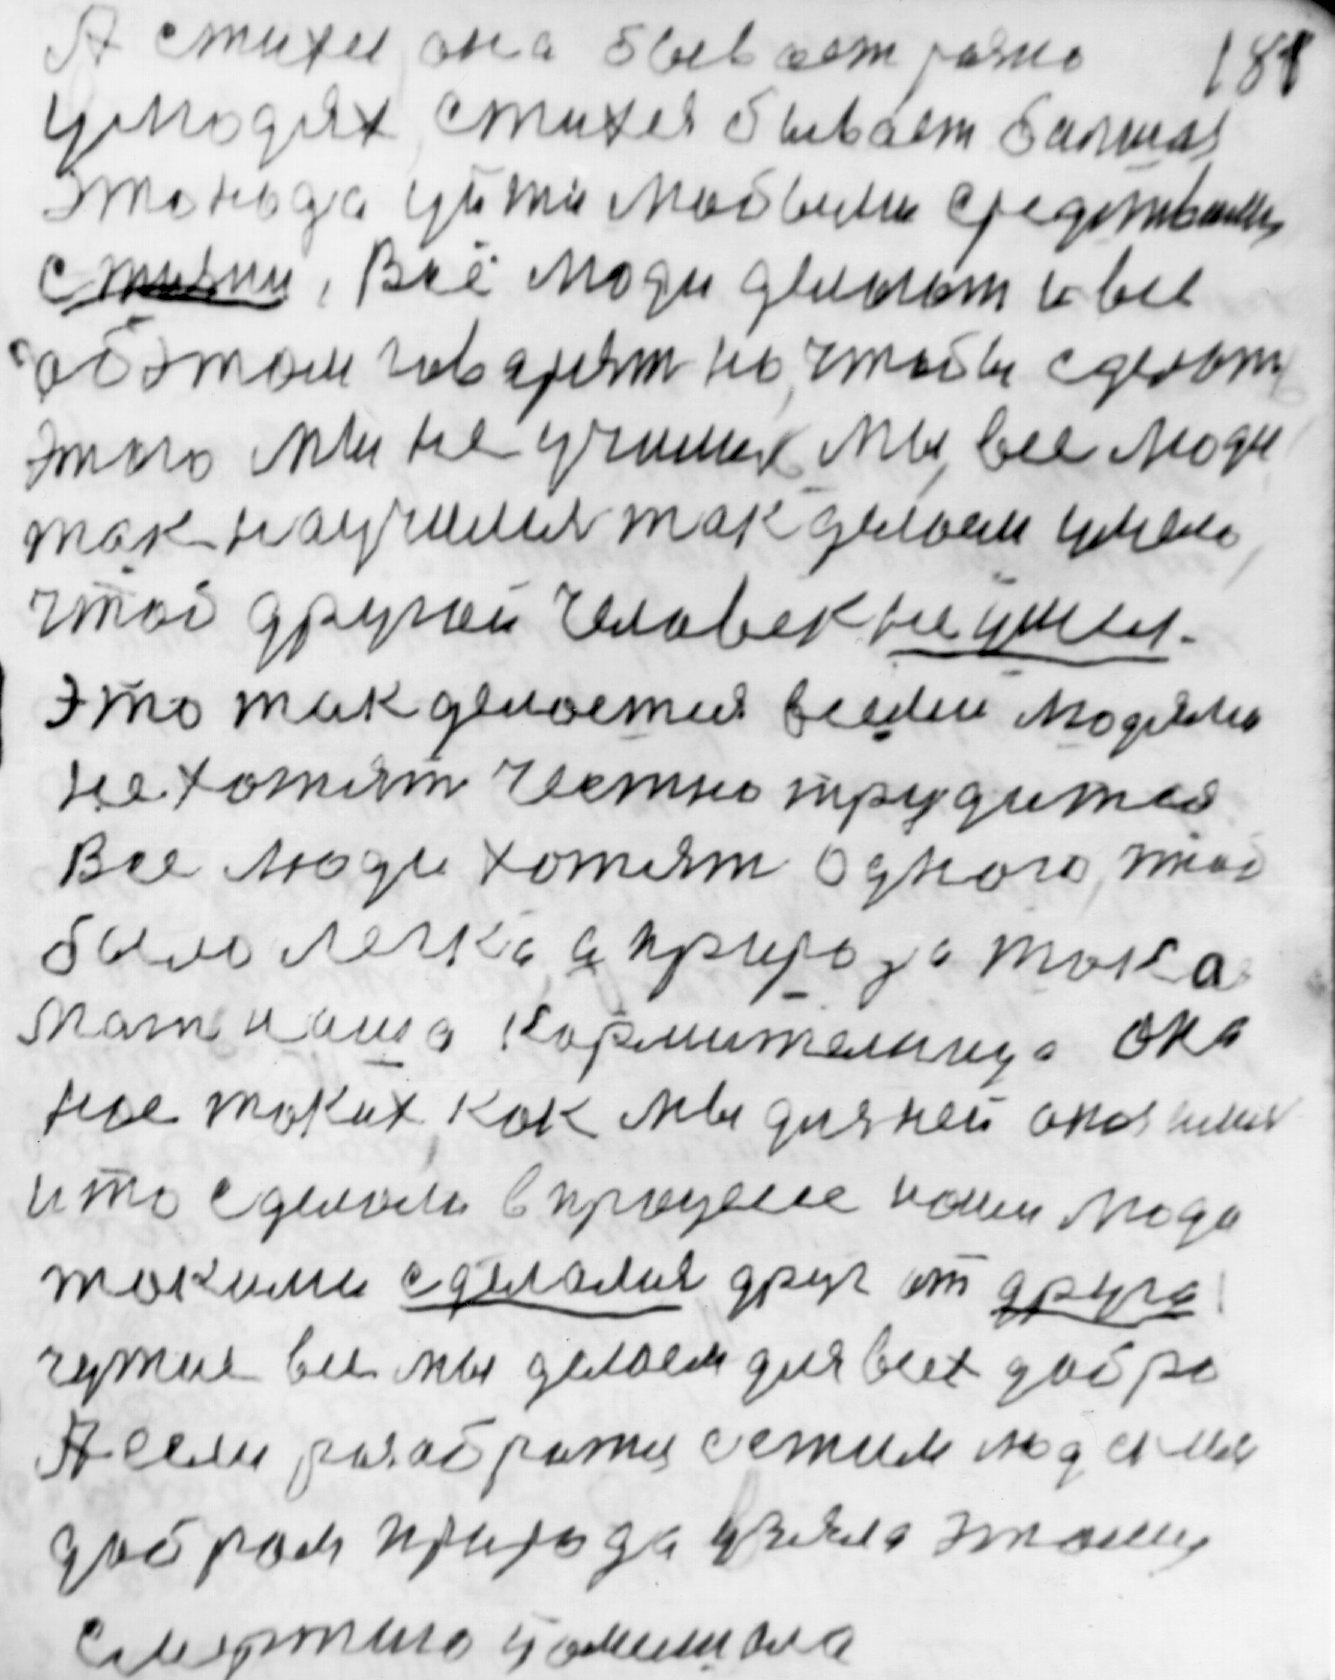 А стихея она бывает разно 188
у людях, стихея бывает балшая
это нада уйти любыми средствами
с жизни, Всё люди делают и все
об этом гаварят но, чтобы сделать
этаго мы не учимся мы, все люди
так научился так делаем умело,
чтоб другой человек не умел.
Это так делается всеми людями
не хотят честно трудится
Все люди хотят одного, чтоб
было легка, а природа така
мать наша кормителница она
нас таких, как мы для ней
и то сделали в процессе наши люди
такими сделался друг от друга
чужие все мы делаем для всех добро
А если разобратца с этим людским
добром природа взяла этому
смертию